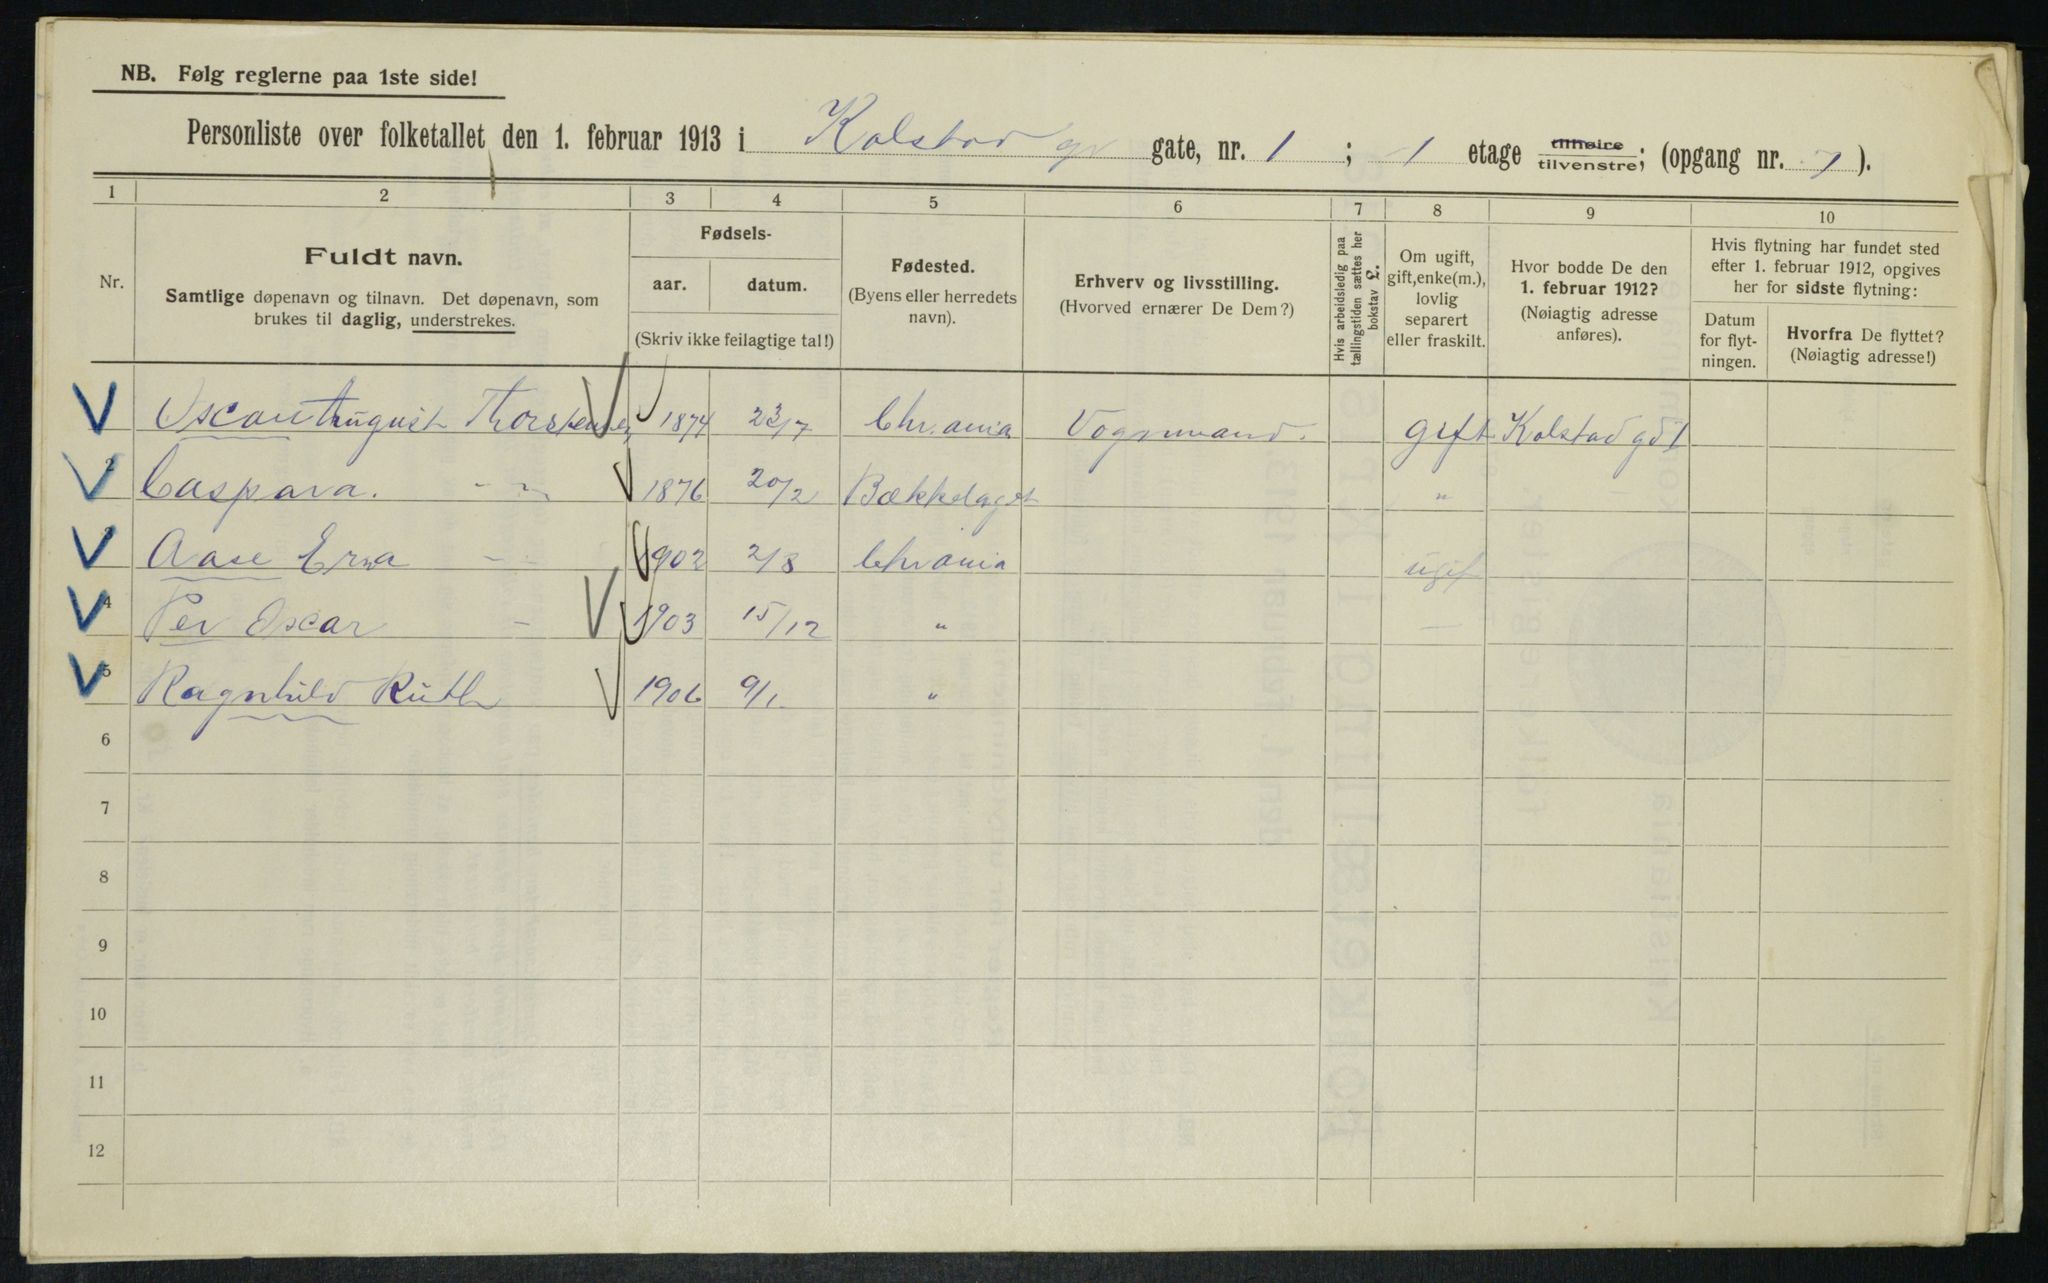 NB. Følg reglerne paa 1ste side!
Personliste over folketallet den 1. februar 1913 i Kolstad g gate, nr. 1 ; 1 etage tilhøire tilvenstre; (opgang nr. 7 ).
1 2 3 4 5 6 7 8 9 10
Nr.
Fuldt navn.
Samtlige døpenavn og tilnavn. Det døpenavn, som
brukes til daglig, understrekes.
Fødsels-
aar. datum.
(Skriv ikke feilagtige tal!)
Fødested.
(Byens eller herredets
navn).
Erhverv og livsstilling.
(Hvorved ernærer De Dem?)
Hvis arbeidsledig paa
tællingstiden sættes her
bokstav £.
Om ugift,
gift, enke(m.),
lovlig
separert
eller fraskilt.
Hvor bodde De den
1. februar 1912?
(Nøiagtig adresse
anføres).
Hvis flytning har fundet sted
efter 1. februar 1912, opgives
her for sidste flytning:
Datum
for flyt-
ningen.
Hvorfra De flyttet?
(Nøiagtig adresse!)
Oscar August Thorstensen 1874 23/7 Chr.ania Vognmand. gift Kolstad gd 1
2 Caspara. - " - 1876 20/2 Bækkelaget "
3 Aase Erna - " 1902 2/8 Chrania ugif
4 Per Oscar - 1903 15/12 " —
5 Ragnhild Ruth 1906 9/1 "
6
7
8
9
10
11
12